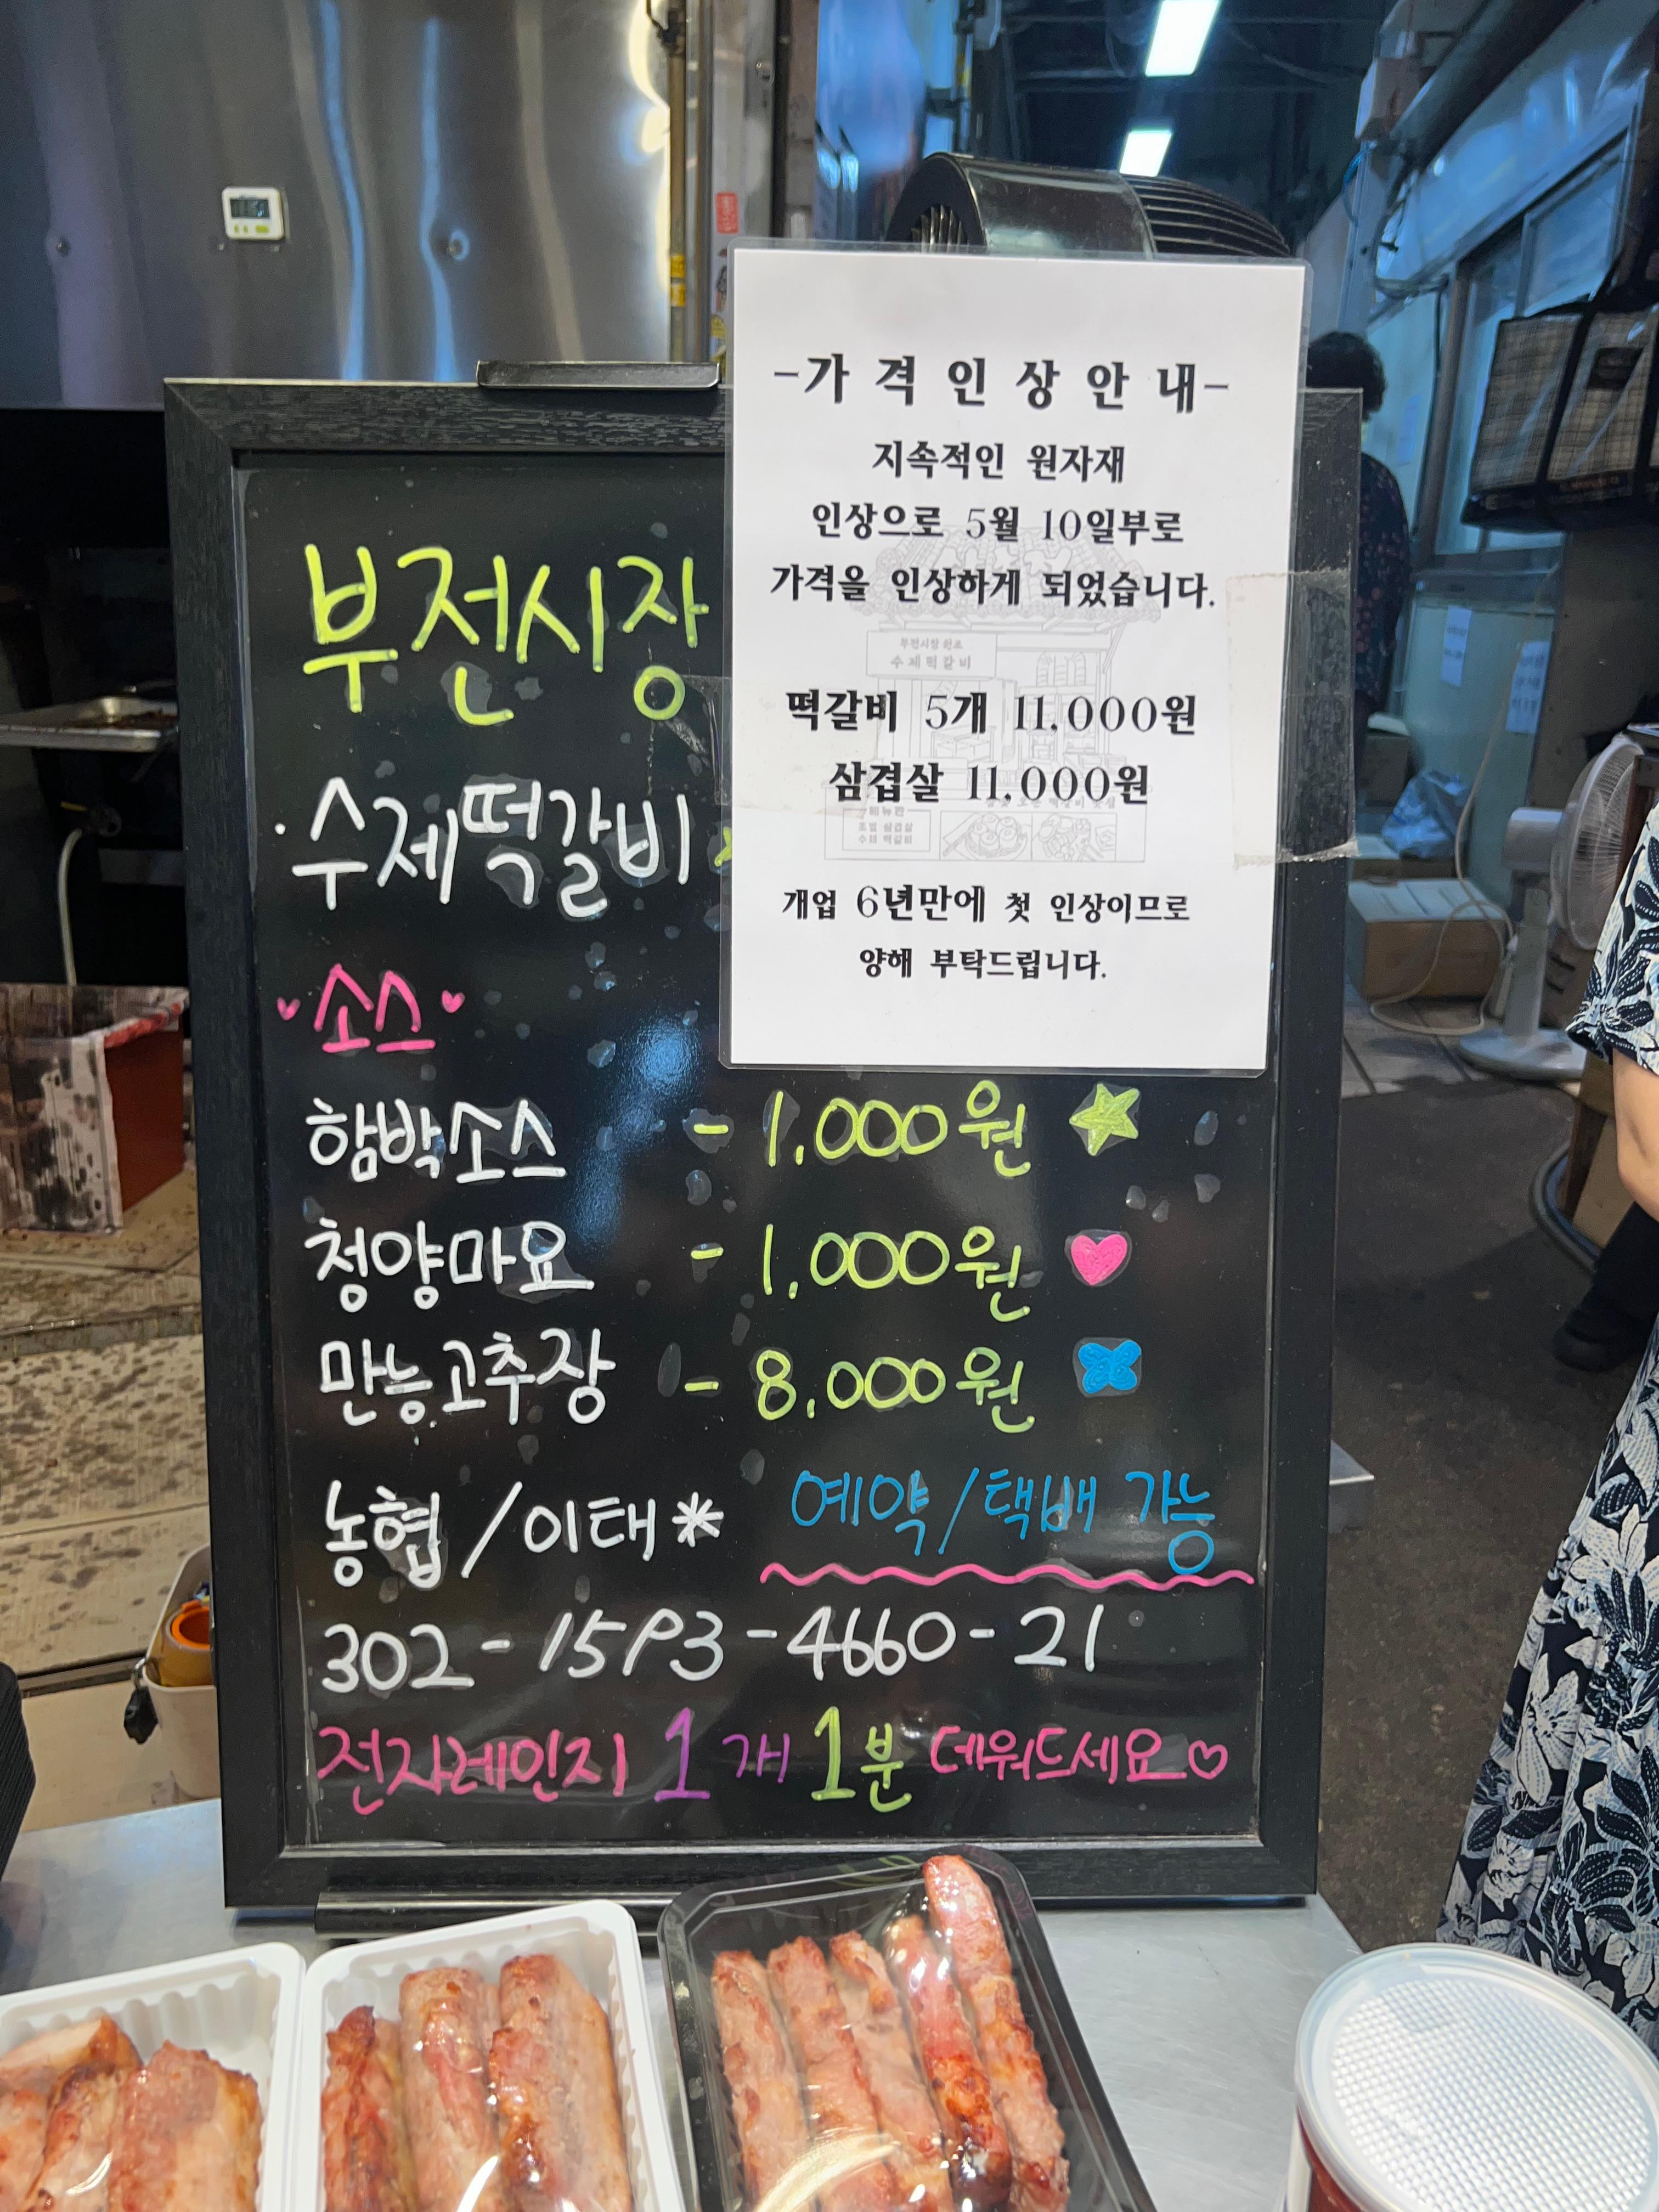 -가격인상안내-
지속적인 원자재
인상으로 5월 10일부로
가격을 인상하게 되었습니다.
부전시장 원조
수제떡갈비
떡갈비 5개 11,000원
삼겹살 11,000원
메뉴판
초벌 삼겹살
수제 떡갈비
개업 6년만에 첫 인상이므로
양해 부탁드립니다.
부전시장
·수제떡갈비
소스
함박소스 - 1,000원
청양마요 - 1,000원
만능고추장 - 8,000원
농협/이태* 예약/택배 가능
302-1593-4660-21
전자레인지 1개 1분 데워드세요♡